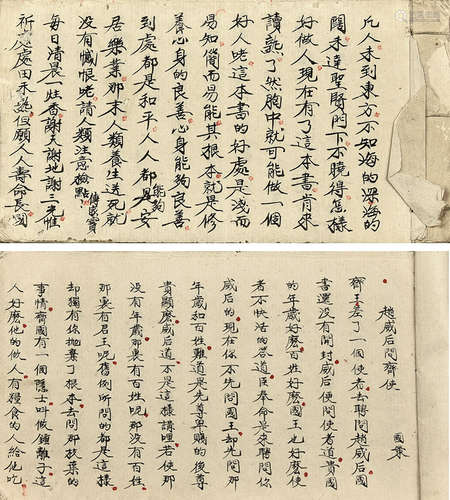 凡人未到東方不知海的深海的
闊未達聖賢門下不曉得怎樣
好做人現在有了這本書肯來
讀熟了然胸中就可能做一個
好人咾這本書的好處是淺而
易知簡而易能其根本就是修
養心身的良善心身能夠良善
到處都是和平人人都能夠安
居樂業那末人類養生送死就
沒有懺悔咾請人類注意檢點
每日清晨炷香謝天謝地謝三光惟
祈處處田禾熟但願人人壽命長國
趙威后問齊使
國策
齊王差了一個使者去聘問趙威后國
書還沒有開封威后便問使者道貴國
的年歲好麼百姓好麼國王也好麼使
者不快活的答道臣奉命是來聘問你
威后的現在你不先問國王卻先問那
年歲和百姓難道是先尊卑賤的後尊
貴顯麼威后道不是這樣講哩若使那
沒有年歲那裏有百姓呢那沒有百姓
那裏有君王呢舊例所問的都是這樣
卻獨有你拋棄了根本去問那枝葉的
事情齊國有一個隱士叫做鍾離子這
人好麼他的做人有糧食的人給他吃